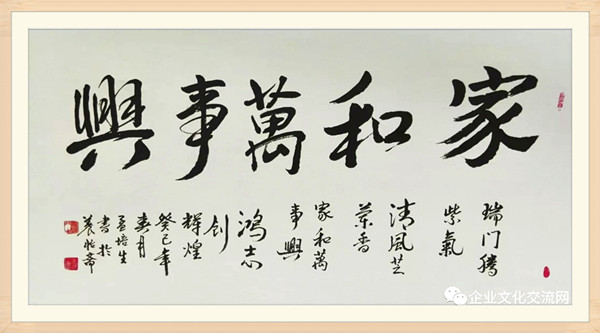 家和萬事興
瑞门腾
紫氣
清風芝
蘭香
家和萬
事興
鸿志
创
辉煌
癸巳年
春月
孟培生
書於
企业文化交流网